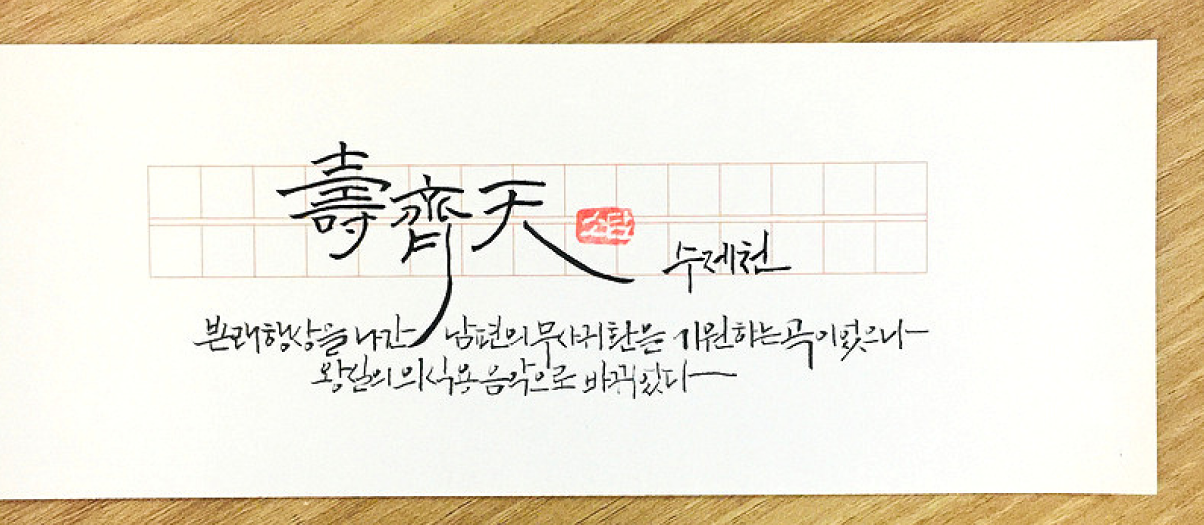 壽齊天 소담 수제천
본래행상을 나간 남편의 무사귀환을 기원하는 곡이었으나
왕실의 의식용 음악으로 바뀌었다